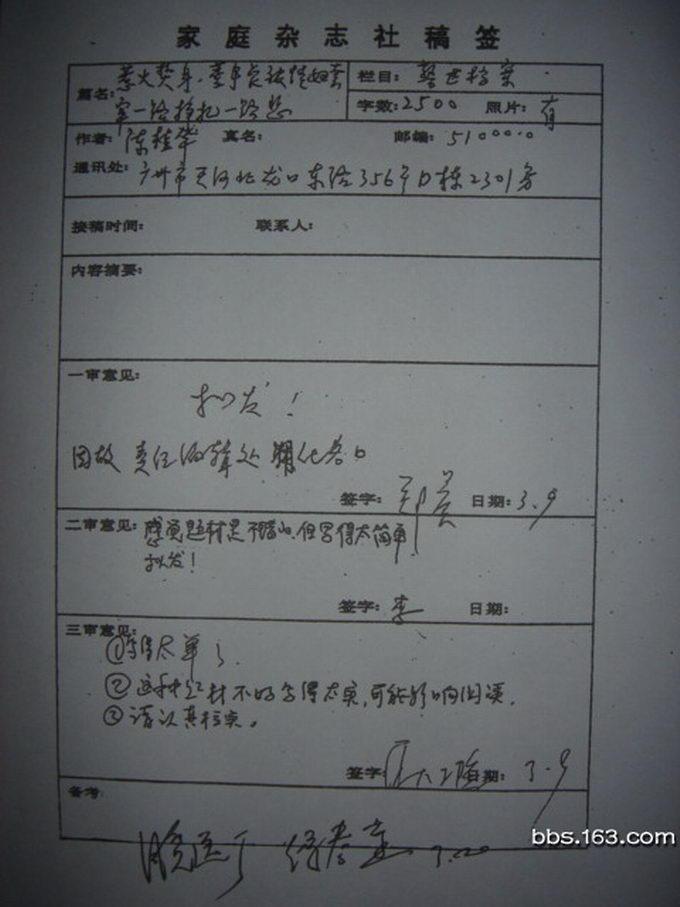 家庭杂志社稿签
篇名: 惹火焚身·董事长 栏目: 警世档案
一路挣扎一路 字数: 2500 照片: 有
作者: 陈桂华 真名: 邮编: 510000
通讯处: 广州市天河北龙口东路356号D栋2301房
接稿时间: 联系人:
内容摘要:
一审意见:
拟发!
因故 责任编辑处
签字: 日期: 3.9
二审意见: 感觉题材是不错的,但写得太简单
拟发!
签字: 李 日期:
三审意见:
①写得太单了
②这种题材不好写得太实,可能影响阅读.
③请认真核实。
签字: 日期: 3.9
备考:
bbs.163.com